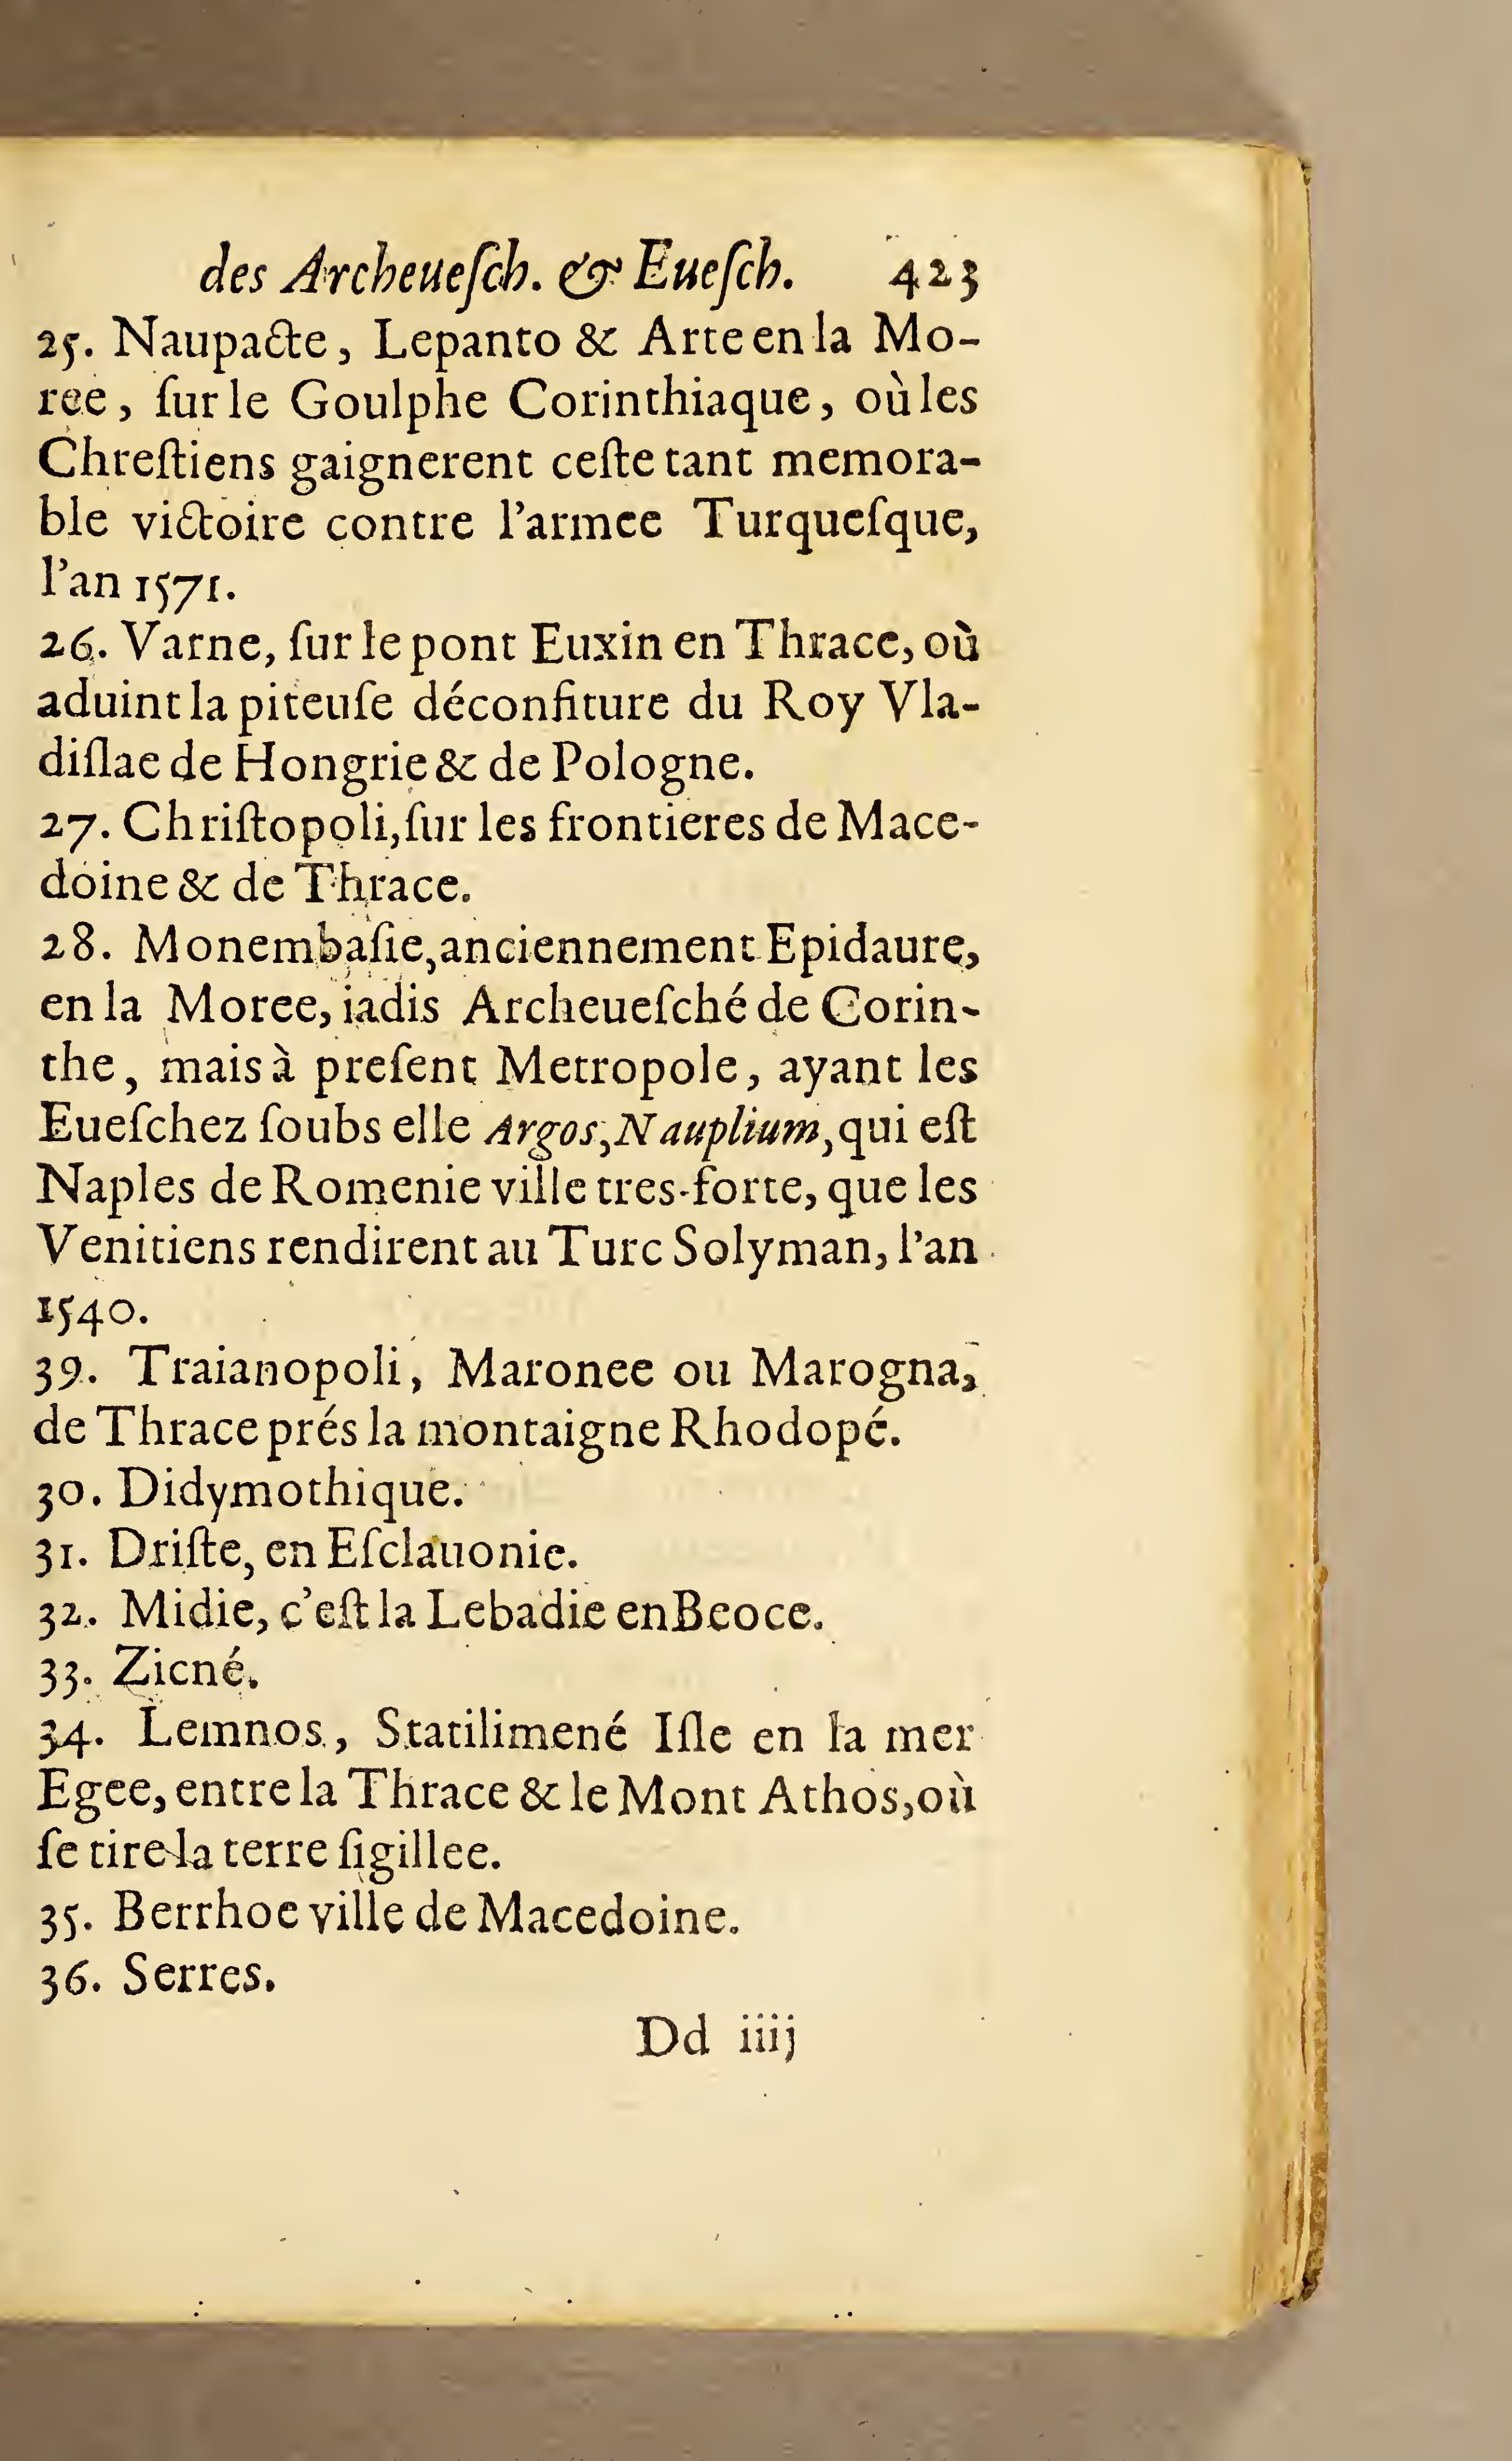 des Archeueſch. & Eueſch. 423
25. Naupacte, Lepanto & Arte en la Mo-
ree, ſur le Goulphe Corinthiaque, où les
Chreſtiens gaignerent ceſte tant memora-
ble victoire contre l'armee Turqueſque,
l'an 1571.
26. Varne, ſur le pont Euxin en Thrace, où
aduint la piteuſe déconfiture du Roy Vla-
diſlae de Hongrie & de Pologne.
27. Chriſtopoli, ſur les frontieres de Mace-
doine & de Thrace.
28. Monembaſie, anciennement Epidaure,
en la Moree, iadis Archeueſché de Corin-
the, mais à preſent Metropole, ayant les
Eueſchez ſoubs elle Argos, Nauplium, qui eſt
Naples de Romenie ville tres-forte, que les
Venitiens rendirent au Turc Solyman, l'an
1540.
39. Traianopoli, Maronee ou Marogna,
de Thrace prés la montaigne Rhodopé.
30. Didymothique.
31. Driſte, en Eſclauonie.
32. Midie, c'eſt la Lebadie en Beoce.
33. Zicné.
34. Lemnos, Statilimené Iſle en la mer
Egee, entre la Thrace & le Mont Athos, où
ſe tire la terre ſigillee.
35. Berrhoe ville de Macedoine.
36. Serres.
Dd iiij